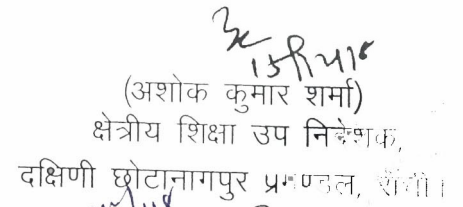 (अशोक कुमार शर्मा)
क्षेत्रीय शिक्षा उप निदेशक,
दक्षिणी छोटानागपुर प्रमण्डल, राँची।